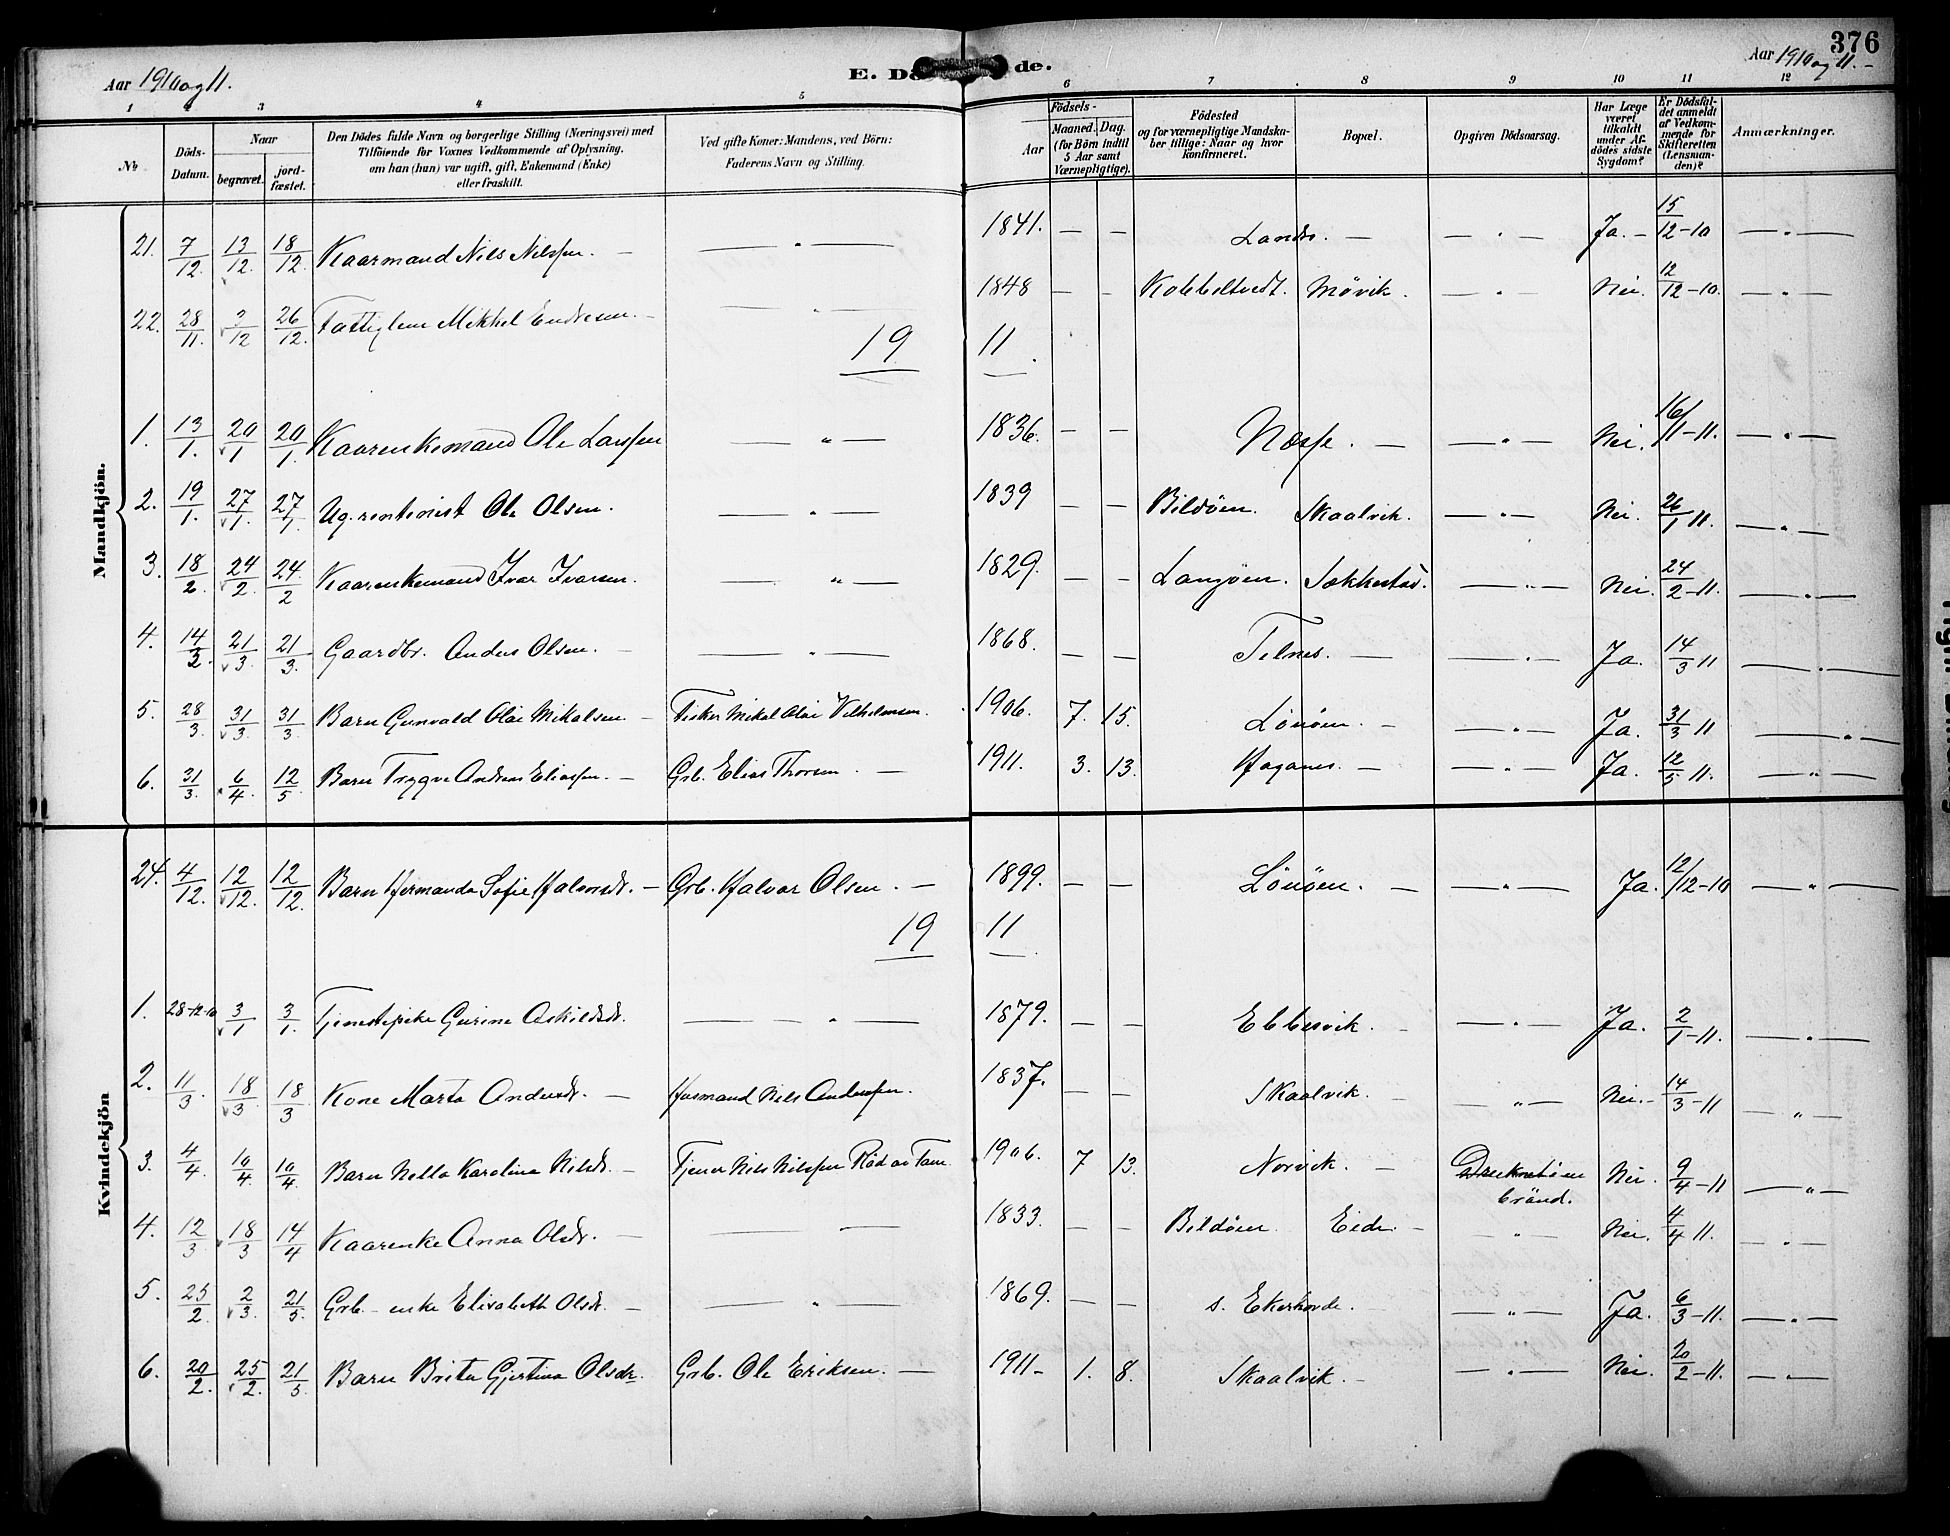 376
Aar 1910 og 11.
E. Dö de.
Aar 1910 og 11.
1 2 3 4 5 6 7 8 9 10 11 12
No.
Döds-Datum.
Naar
begravet.
jordfæstet.
Den Dödes fulde Navn og borgerlige Stilling (Næringsvei) med
Tilföiende for Voxnes Vedkommende af Oplysning,
om han (hun) var ugift, gift, Enkemand (Enke)
eller fraskilt.
Ved gifte Koner: Mandens, ved Börn:
Faderens Navn og Stilling.
Födsels-
Aar
Maaned. Dag.
(for Börn indtil
5 Aar samt
Værnepligtige).
Födested
og for værnepligtige Mandska-
ber tillige: Naar og hvor
konfirmeret.
Bopæl.
Opgiven Dödsaarsag.
Har Læge
været
tilkaldt
under Af-
dödes sidste
Sygdom?
Er Dödsfal-
det anmeldt
af Vedkom-
mende for
Skifteretten
(Lensman-
den)?
Anmærkninger.
Mandkjön.
21. 7/12. 13/12. 18/12. Kaarmand Nils Nilssen. — — " — 1841. — — Lands. — — " — Ja. — 15/12-10 — " —
22. 28/11. 2/12 26/12. Fattiglem Mikkel Endresen. — — " — 1848 — — Kobbeltvedt. Møvik. — " — Nei. 12/12-10. — " —
19 11.
1. 13/1. 20/1 20/1. Kaarenkemand Ole Larssen — " — 1836. — — Næsse. — — " — Nei. 16/1-11. — " —
2. 19/1. 27/1. 27/1. Ug. rentenist Ole Olsen. — " — 1839 — — Bildøen. Skaalvik. — " — Nei. 26/1 11. — " —
3. 18/2. 24/2. 24/2 Kaarenkemand Ivar Ivarsen. — " — 1829. — — Langøen. Sækkestad. — " — Nei. 24/2-11. — " —
4. 14/3 21/3. 21/3. Gaardbr. Anders Olsen. — — " — 1868. — — Telnes. — — " — Ja. 14/3 11 — " —
5. 28/3. 31/3. 31/3. Barn Gunvald Olai Mikalsen — Fisker Mikal Olai Vilhelmsen. 1906. 7. 15. Lönöen. — — " — Ja. 31/3 11 — " —
6. 31/3. 6/4. 12/5 Barn Trygve Andreas Eliassen. — Grb. Elias Thorsen. — 1911. 3. 13. Haganes. — — " — Ja. 12/5 11. — " —
Kvindekjön
24. 4/12. 12/12. 12/12. Barn Hermanda Sofie Halvorsdr. — Grb. Halvor Olsen. — 1899. — — Lönöen. — — " — Ja. 12/12-10 — " —
19 11.
1. 28-12-10 3/1 3/1. Tjenestepike Gurine Askildsdr. — — " — 1879. — — Ebbesvik. — — " — Ja. 2/1-11. — " —
2. 11/3 18/3. 18/3 Kone Marta Andersdr. — Husmand Nils Anderssen. 1837. — — Skaalvik. — — " — Nei. - 14/3-11 — " —
3. 4/4. 10/4 10/4 Barn Nella Karolina Nilsdr. — Tjener Nils Nilssen 1906. 7 13. Norvik. — brönd. Nei. 9/4-11 — " —
4. 12/3 18/3 14/4 Kaarenke Anna Olsdr. — — — 1833. — — Bildöen Eide. — — " — Nei. 4/4 11. — " —
5. 25/2. 2/3. 21/5. Grb. - enke Elisabeth Olsdr. — — " — 1869. — — s. Ekerhovde. — " — Ja. 6/3-11. — " —
6. 20/2. 25/2. 21/5 Barn Brita Gjertina Olsdr. Grb. Ole Eriksen. — 1911- 1. 8. Skaalvik. — — " — Nei. 20/2-11. — " —